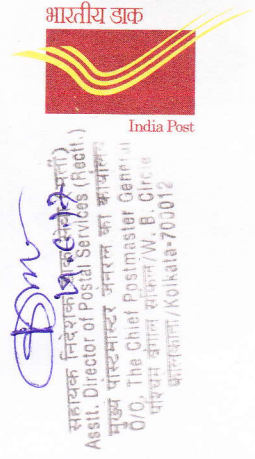 भारतीय डाक
India Post
सहायक निदेशक डाक सेवाएं (भर्ती)
Asstt. Director of Postal Services (Rectt.)
मुख्य पोस्टमास्टर जनरल का कार्यालय
O/O, The Chief Postmaster General
पश्चिम बंगाल सर्किल/W. B. Circle
कोलकाता/Kolkata-700012